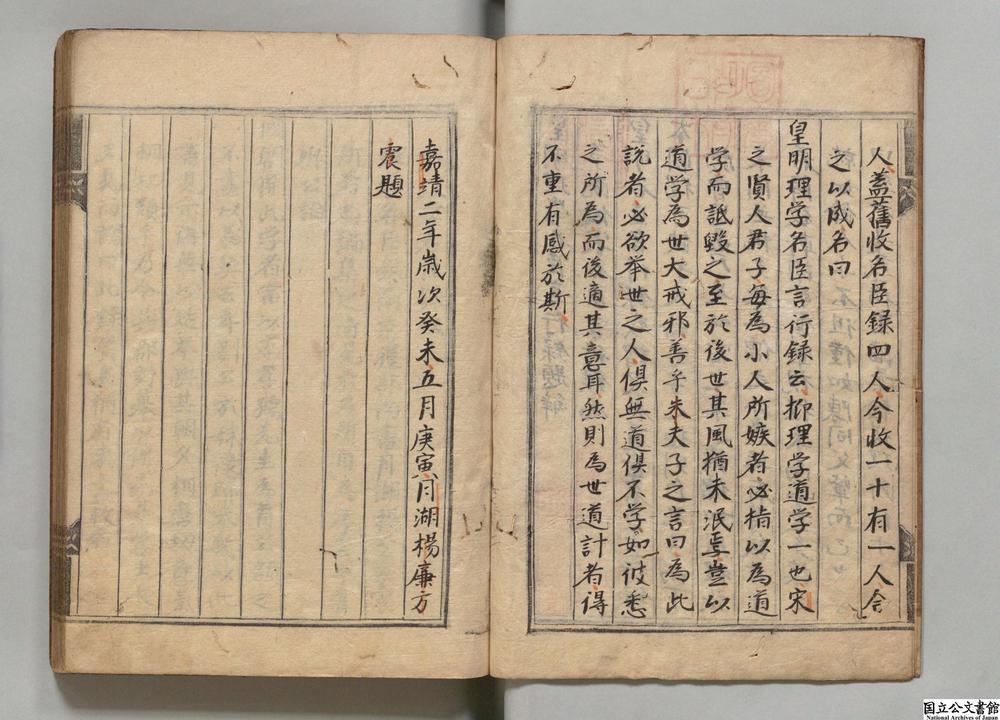 人蓋舊收名臣録四人今收一十有一人合
之以成名曰
皇明理学名臣言行録云抑理学道学一也宋
之賢人君子每為小人所嫉者必指以為道
学而詆毀之至於後世其風猶未泯焉豈以
道学為世大戒邪善乎朱夫子之言曰為此
説者必欲举世之人俱無道俱不学如彼悉
之所為而後適其意耳然則為世道計者得
不重有感於斯
嘉靖二年歳次癸未五月庚寅月湖楊廉方
震題
国立公文書館
National Archives of Japan